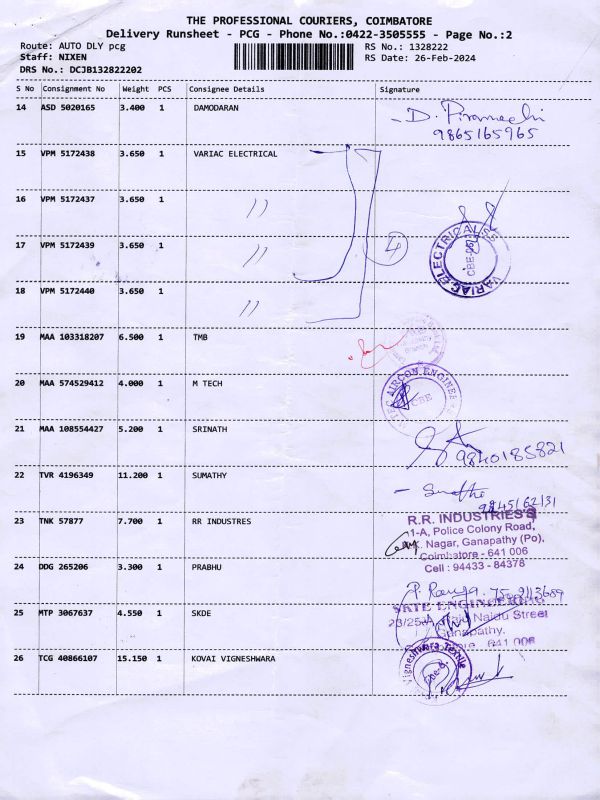 THE PROFESSIONAL COURIERS, COIMBATORE
Delivery Runsheet - PCG - Phone No.:0422-3505555 - Page No.:2
Route: AUTO DLY pcg
RS No.: 1328222
Staff: NIXEN
RS Date: 26-Feb-2024
DRS No.: DCJB132822202
S No Consignment No Weight PCS Consignee Details Signature
14 ASD 5020165 3.400 1 DAMODARAN
9865165965
15 VPM 5172438 3.650 1 VARIAC ELECTRICAL
16 VPM 5172437 3.650 1 //
17 VPM 5172439 3.650 1 // 4
VARIAC ELECTRICALSS
CBE
18 VPM 5172440 3.650 1 //
19 MAA 103318207 6.500 1 TMB
20 MAA 574529412 4.000 1 M TECH
AIRCON ENGINEE
CBE
21 MAA 108554427 5.200 1 SRINATH
9840185821
22 TVR 4196349 11.200 1 SUMATHY
9845162131
23 TNK 57877 7.700 1 RR INDUSTRES
R.R. INDUSTRIES
1-A, Police Colony Road,
Nagar, Ganapathy (Po),
Coimbatore - 641 006
Cell : 94433 - 84378
24 DDG 265206 3.300 1 PRABHU
25 MTP 3067637 4.550 1 SKDE
SKTE ENGINEERING
Naidu Street
Ganapathy,
641 006
26 TCG 40866107 15.150 1 KOVAI VIGNESHWARA
Vigneshwara Textile